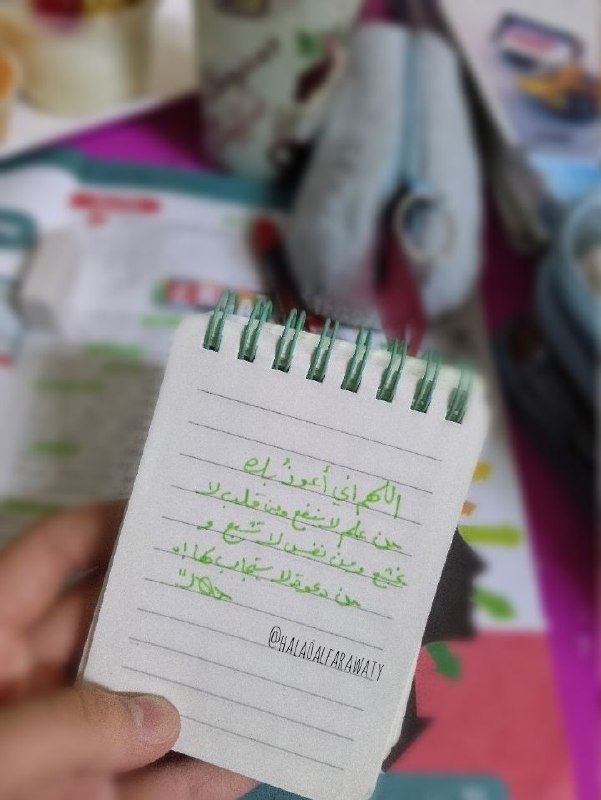 اللهم اني أعوذُ بك
من علم لا ينفع ومن قلب لا
يخشع ومن نفس لا تشبع و
من دعوة لا يستجاب لها!!
@HALAOALFARAWATY